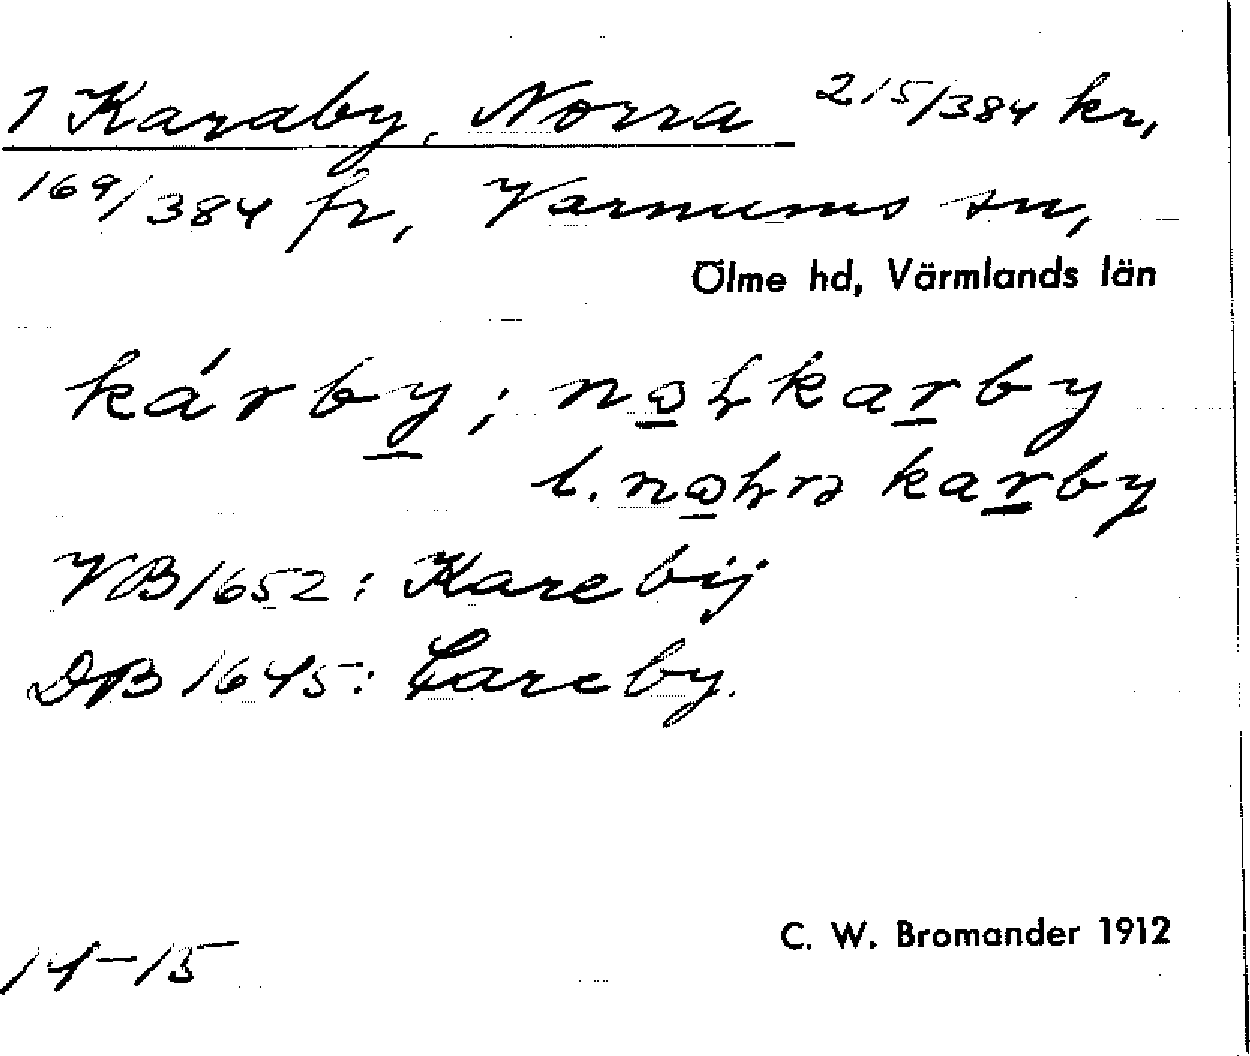 1 Karaby, Norra 215/384 kr,
169/384 fr, Varnums sn,
Ölme hd, Värmlands län
kárby; karby
l. karby
VB 1652: Karebij
DB 1645: Careby.
C. W. Bromander 1912
14-15